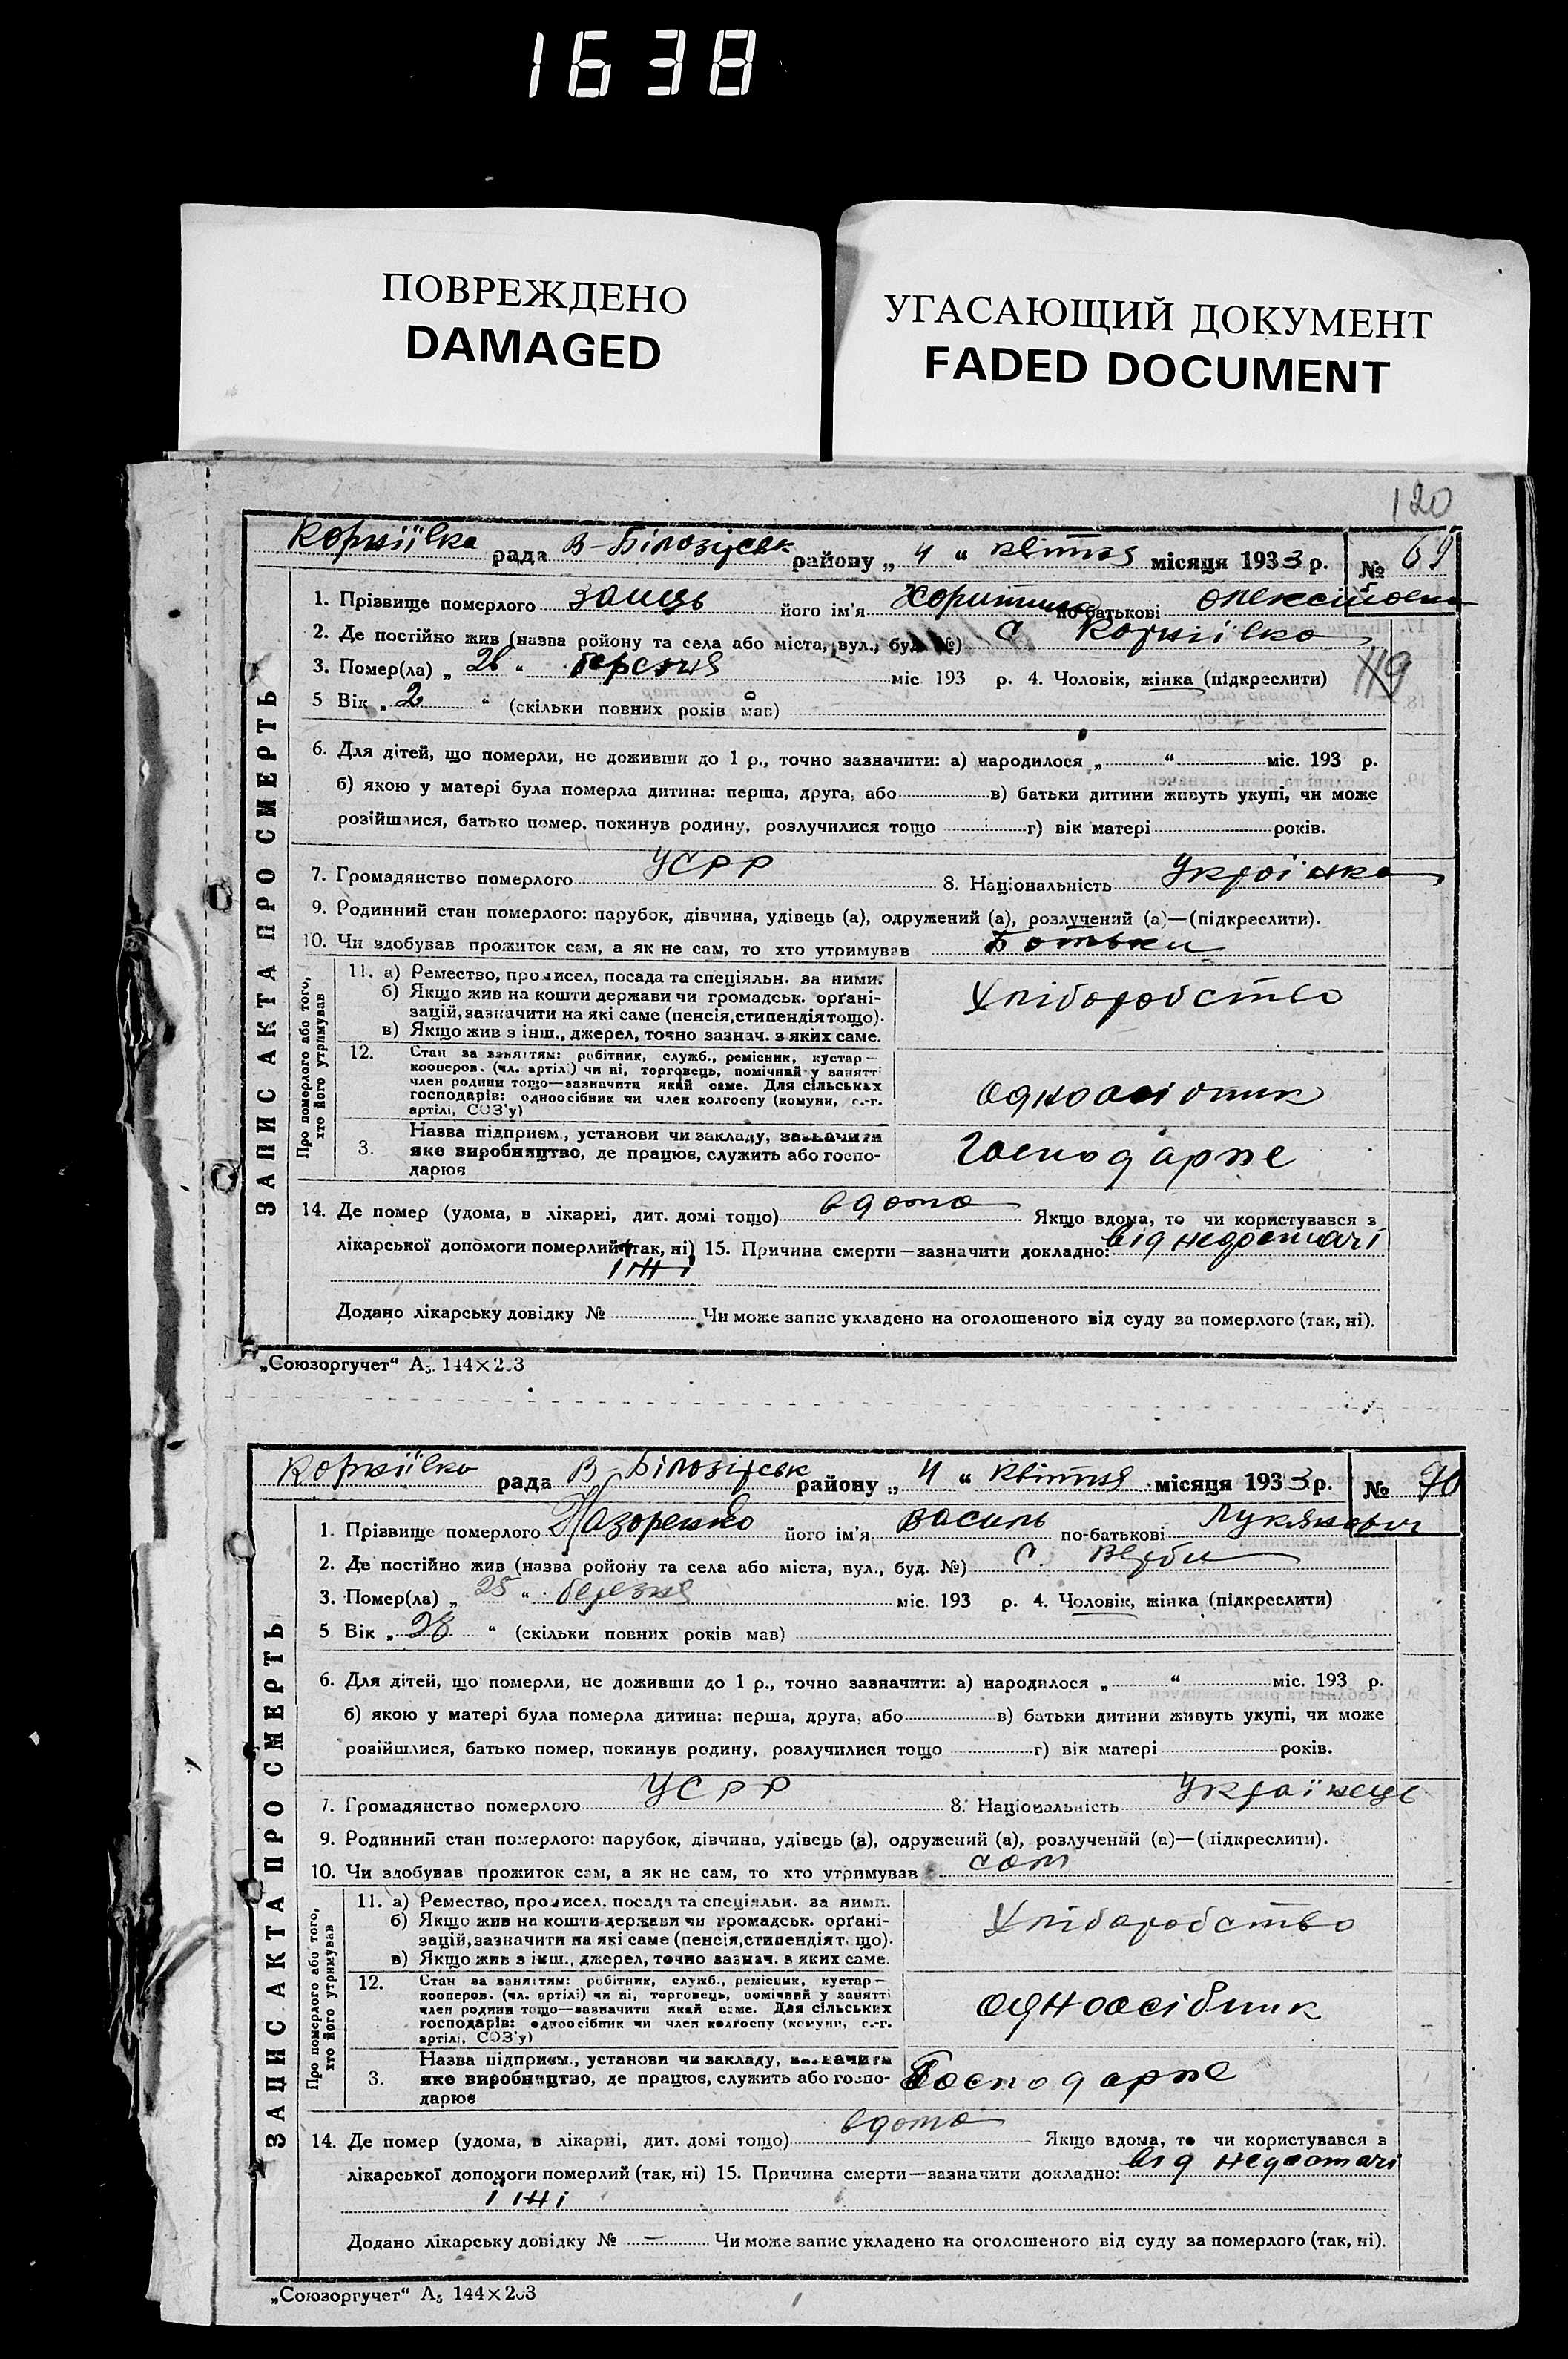 1638
ПОВРЕЖДЕНО
DAMAGED
УГАСАЮЩИЙ ДОКУМЕНТ
FADED DOCUMENT
120
Корніївка рада В-Білозірськ району „ 4 “ квітня місяця 1933 р. № 69
ЗАПИС АКТА ПРО СМЕРТЬ
1. Прізвище померлого Заиць його ім'я Харитина по-батькові Олексіївна
2. Де постійно жив (назва ройону та села або міста, вул., буд. №) С Корніївка
3. Помер(ла) „ 26 “ міс 193 р. 4. Чоловік, жінка (підкреслити)
119
5 Вік „ 2 “ (скільки повних років мав)
6. Для дітей, що померли, не доживши до 1 р., точно зазначити: а) народилося „ “ міс. 193 р.
б) якою у матері була померла дитина: перша, друга, або в) батьки дитини живуть укупі, чи може
розійшлися, батько помер, покинув родину, розлучилися тощо г) вік матері років.
7. Громадянство померлого УСРР 8. Національність Українка
9. Родинний стан померлого: парубок, дівчина, удівець (а), одружений (а), розлучений (а)—(підкреслити).
10. Чи здобував прожиток сам, а як не сам, то хто утримував Батьки
Про померлого або того, хто його утримував
11. а) Ремество, промисел, посада та спеціяльн. за ними.
б) Якщо жив на кошти держави чи громадськ. орґані-
зацій, зазначити на які саме (пенсія, стипендія тощо).
в) Якщо жив з інш., джерел, точно зазнач. з яких саме.
Хліборобство
12. Стан за заняттям: робітник, служб., ремісник, кустар—
кооперов. (чл. артілі) чи ні, торговець, помічний у занятті
член родини тощо—зазначити який саме. Для сільських
господарів: одноосібник чи член колгоспу (комуни, с.-г.
артілі, СОЗ'у)
одноосібник
3. Назва підприєм., установи чи закладу, зазначити
яке виробництво, де працює, служить або госпо-
дарює
Господарпе
14. Де помер (удома, в лікарні, дит. домі тощо) вдома Якщо вдома, то чи користувався з
лікарської допомоги померлий (так, ні) 15. Причина смерти—зазначити докладно: від недостачі
їжі
Додано лікарську довідку № Чи може запис укладено на оголошеного від суду за померлого (так, ні).
„Союзоргучет“ А5 144×203
Корніївка рада В-Білозірськ району „ 4 “ квітня місяця 1933 р. № 70
ЗАПИС АКТА ПРО СМЕРТЬ
1. Прізвище померлого Назоренко його ім'я Василь по-батькові Лукянович
2. Де постійно жив (назва ройону та села або міста, вул., буд. №) С. Верби
3. Помер(ла) „ 25 “ березня міс. 193 р. 4. Чоловік, жінка (підкреслити)
5 Вік „ 28 “ (скільки повних років мав)
6. Для дітей, що померли, не доживши до 1 р., точно зазначити: а) народилося „ “ міс. 193 р.
б) якою у матері була померла дитина: перша, друга, або в) батьки дитини живуть укупі, чи може
розійшлися, батько помер, покинув родину, розлучилися тощо г) вік матері років.
7. Громадянство померлого УСРР 8. Національність Українець
9. Родинний стан померлого: парубок, дівчина, удівець (а), одружений (а), розлучений (а)—(підкреслити).
10. Чи здобував прожиток сам, а як не сам, то хто утримував сам
Про померлого або того, хто його утримував
11. а) Ремество, промисел, посада та спеціяльн. за ними.
б) Якщо жив на кошти держави чи громадськ. орґані-
зацій, зазначити на які саме (пенсія, стипендія тощо).
в) Якщо жив з інш., джерел, точно зазнач. з яких саме.
Хліборобство
12. Стан за заняттям: робітник, служб., ремісник, кустар—
кооперов. (чл. артілі) чи ні, торговець, помічний у занятті
член родини тощо—зазначити який саме. Для сільських
господарів: одноосібник чи член колгоспу (комуни, с.-г.
артілі, СОЗ'у)
одноосібник
3. Назва підприєм., установи чи закладу, зазначити
яке виробництво, де працює, служить або госпо-
дарює
Господарпе
14. Де помер (удома, в лікарні, дит. домі тощо) вдома Якщо вдома, то чи користувався з
лікарської допомоги померлий (так, ні) 15. Причина смерти—зазначити докладно: від недостачі
їжі
Додано лікарську довідку № — Чи може запис укладено на оголошеного від суду за померлого (так, ні).
„Союзоргучет“ А5 144×203